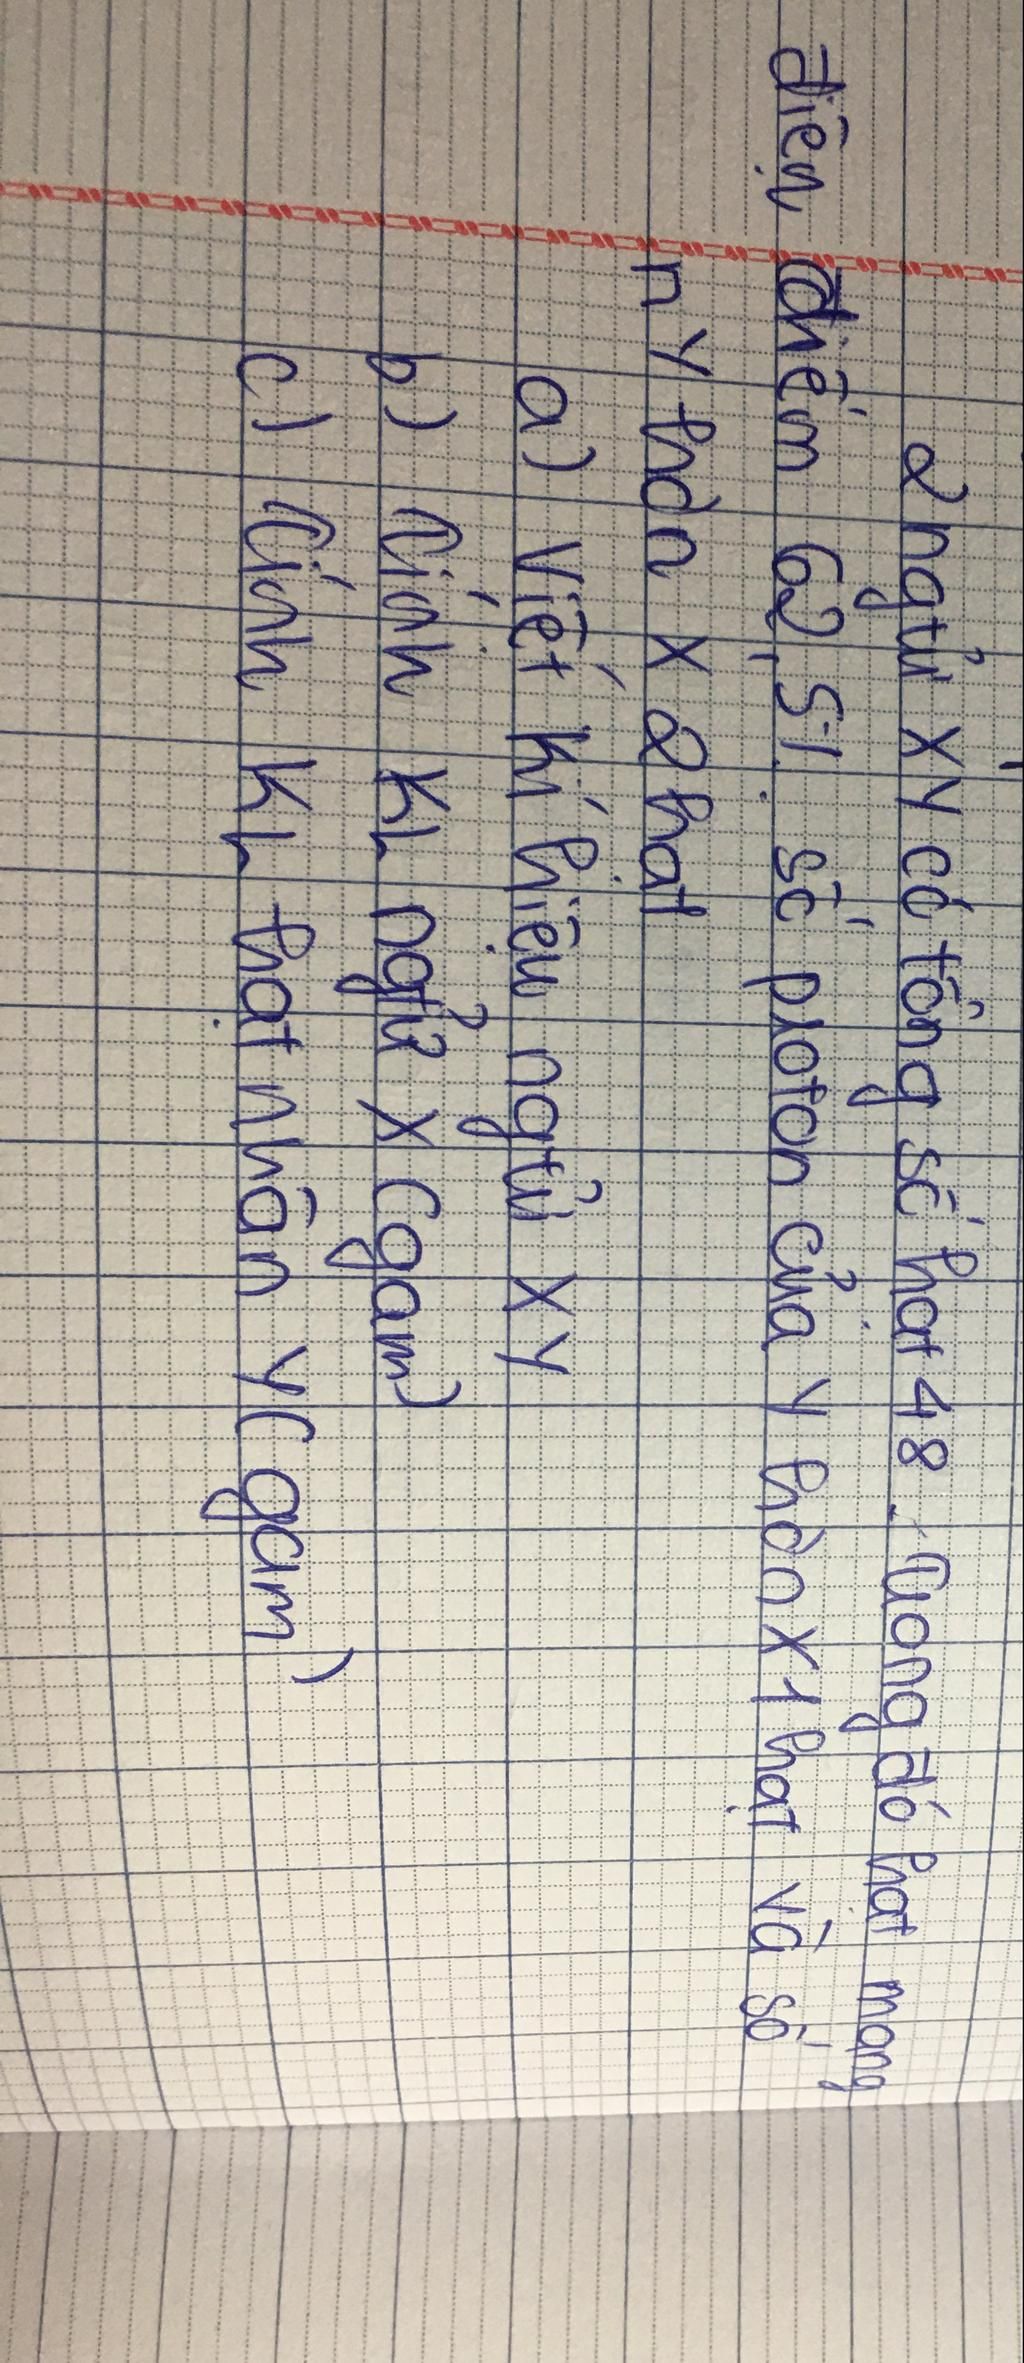 2 ngtử X Y có tổng số hạt 48. Trong đó hạt mang
điện chiếm 62,5%. số proton của Y hơn X 1 hạt và số
n Y hơn X 2 hạt
a) Viết kí hiệu ngtử X Y
b) Tính KL ngtử X (gam)
c) Tính KL hạt nhân Y (gam)